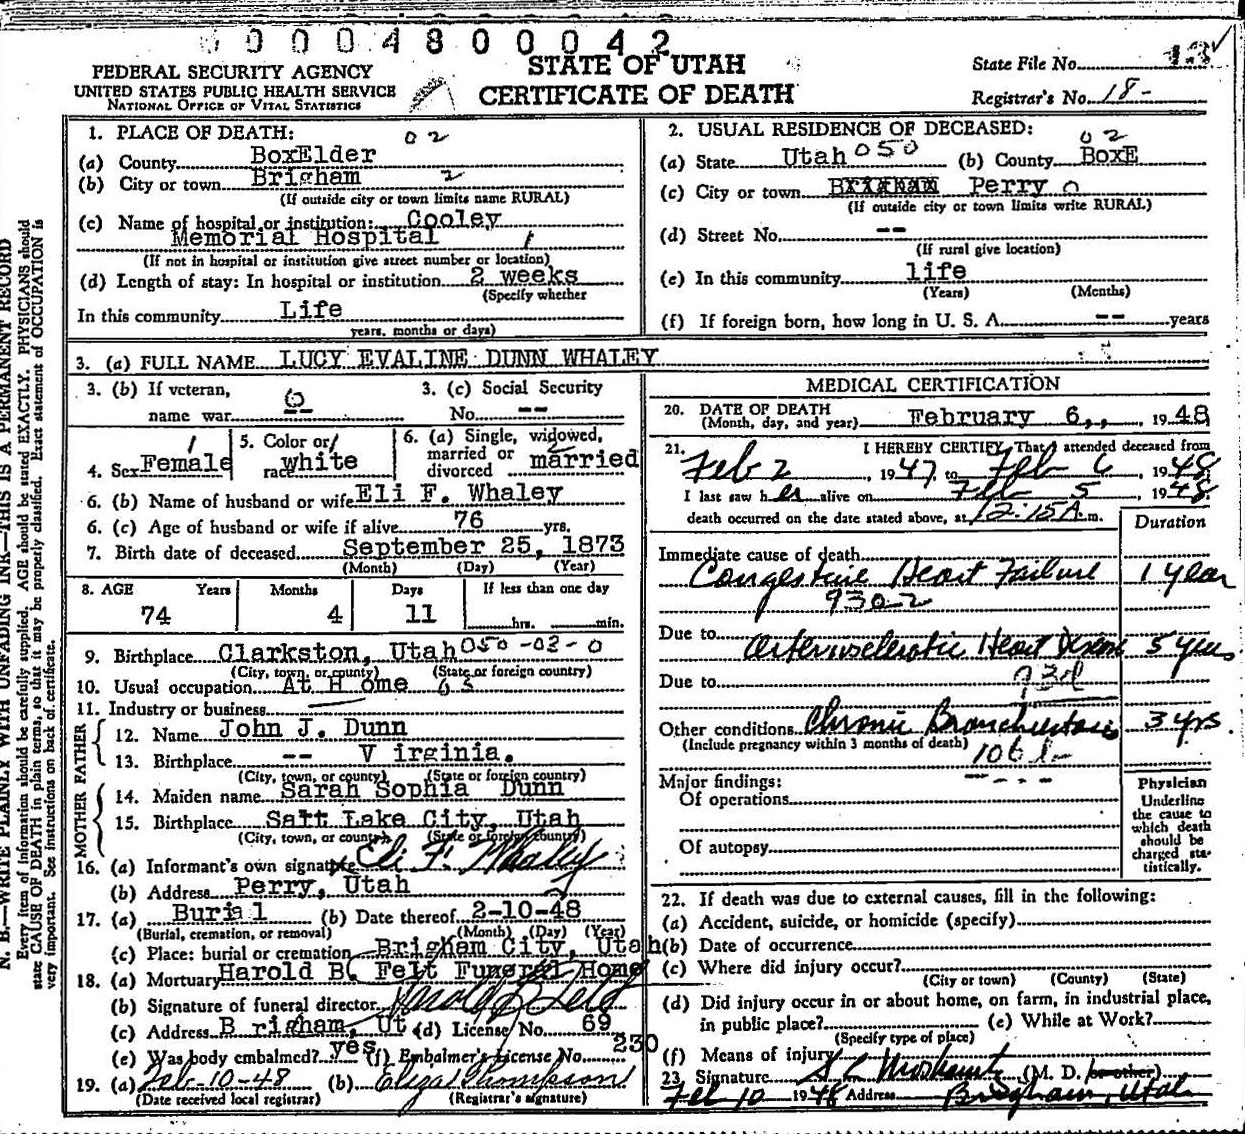 0 0 0 4 8 0 0 0 4 2
FEDERAL SECURITY AGENCY
UNITED STATES PUBLIC HEALTH SERVICE
NATIONAL OFFICE OF VITAL STATISTICS
STATE OF UTAH
CERTIFICATE OF DEATH
State File No. 13
Registrar's No. 18-
1. PLACE OF DEATH: 02
(a) County BoxElder
(b) City or town Brigham 2
(If outside city or town limits name RURAL)
(c) Name of hospital or institution: Cooley
Memorial Hospital 1
(If not in hospital or institution give street number or location)
(d) Length of stay: In hospital or institution 2 weeks
(Specify whether
In this community Life
years, months or days)
2. USUAL RESIDENCE OF DECEASED:
02
(a) State Utah 050 (b) County BoxE
(c) City or town Brigham Perry 0
(If outside city or town limits write RURAL)
(d) Street No. --
(If rural give location)
(e) In this community life
(Years) (Months)
(f) If foreign born, how long in U. S. A. -- years
3. (a) FULL NAME LUCY EVALINE DUNN WHALEY
3. (b) If veteran, name war 0 --
3. (c) Social Security No. --
4. Sex Female 1
5. Color or race white 1
6. (a) Single, widowed, married or divorced married 2
6. (b) Name of husband or wife Eli F. Whaley
6. (c) Age of husband or wife if alive 76 yrs.
7. Birth date of deceased September 25, 1873
(Month) (Day) (Year)
8. AGE Years Months Days If less than one day
74 4 11 hrs. min.
9. Birthplace Clarkston, Utah 050-03-0
(City, town, or county) (State or foreign country)
10. Usual occupation At H ome
11. Industry or business
FATHER
12. Name John J. Dunn
13. Birthplace -- V irginia.
(City, town, or county) (State or foreign country)
MOTHER
14. Maiden name Sarah Sophia Dunn
15. Birthplace Salt Lake City, Utah
(City, town, or county) (State or foreign country)
16. (a) Informant's own signature x Eli F. Whaley
(b) Address Perry, Utah
17. (a) Burial (b) Date thereof 2-10-48
(Burial, cremation, or removal) (Month) (Day) (Year)
(c) Place: burial or cremation Brigham City, Utah
18. (a) Mortuary Harold B. Felt Funeral Home
(b) Signature of funeral director Harold B Felt
(c) Address B righam, Ut (d) License No. 69
(e) Was body embalmed? yes (f) Embalmer's License No. 230
19. (a) Feb-10-48 (b) Eliza Thompson
(Date received local registrar) (Registrar's signature)
MEDICAL CERTIFICATION
20. DATE OF DEATH February 6,, 1948
(Month, day, and year)
21. I HEREBY CERTIFY, That I attended deceased from
Feb 2, 1947, to Feb 6, 1948
I last saw her alive on Feb 5, 1948
death occurred on the date stated above, at 12:15 A.m.
Duration
Immediate cause of death
Congestive Heart Failure 1 year
930-2
Due to Arteriosclerotic Heart Disease 5 years
Due to 93d
Other conditions Chronic Bronchiectasis 3 yrs.
(Include pregnancy within 3 months of death) 106
Major findings:
Of operations
Of autopsy
Physician
Underline
the cause to
which death
should be
charged sta-
tistically.
22. If death was due to external causes, fill in the following:
(a) Accident, suicide, or homicide (specify)
(b) Date of occurrence
(c) Where did injury occur?
(City or town) (County) (State)
(d) Did injury occur in or about home, on farm, in industrial place,
in public place? (e) While at Work?
(Specify type of place)
(f) Means of injury
23 Signature (M. D. or other)
Feb 10 1948 Address Brigham, Utah
N. B.—WRITE PLAINLY WITH UNFADING INK—THIS IS A PERMANENT RECORD
Every item of information should be carefully supplied. AGE should be stated EXACTLY. PHYSICIANS should
state CAUSE OF DEATH in plain terms, so that it may be properly classified. Exact statement of OCCUPATION is
very important. See instructions on back of certificate.